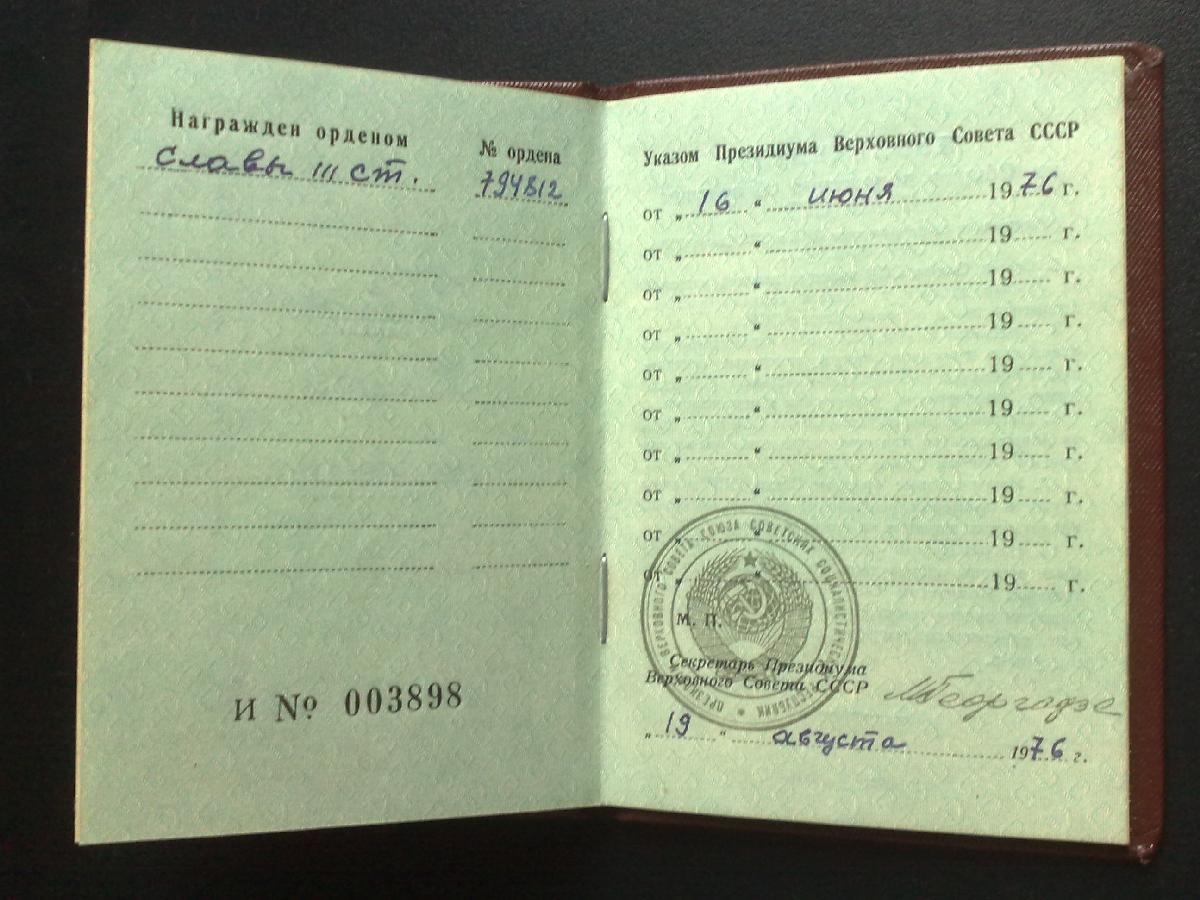 Награжден орденом
№ ордена
Славы III ст.
794812
И № 003898
Указом Президиума Верховного Совета СССР
от „ 16 “ июня 1976 г.
от „ “ 19 г.
от „ “ 19 г.
от „ “ 19 г.
от „ “ 19 г.
от „ “ 19 г.
от „ “ 19 г.
от „ “ 19 г.
от „ “ 19 г.
от „ “ 19 г.
ПРЕЗИДИУМ ВЕРХОВНОГО СОВЕТА СОЮЗА СОВЕТСКИХ СОЦИАЛИСТИЧЕСКИХ РЕСПУБЛИК
М. П.
Секретарь Президиума
Верховного Совета СССР
МГеоргадзе
„ 19 “ августа 1976 г.